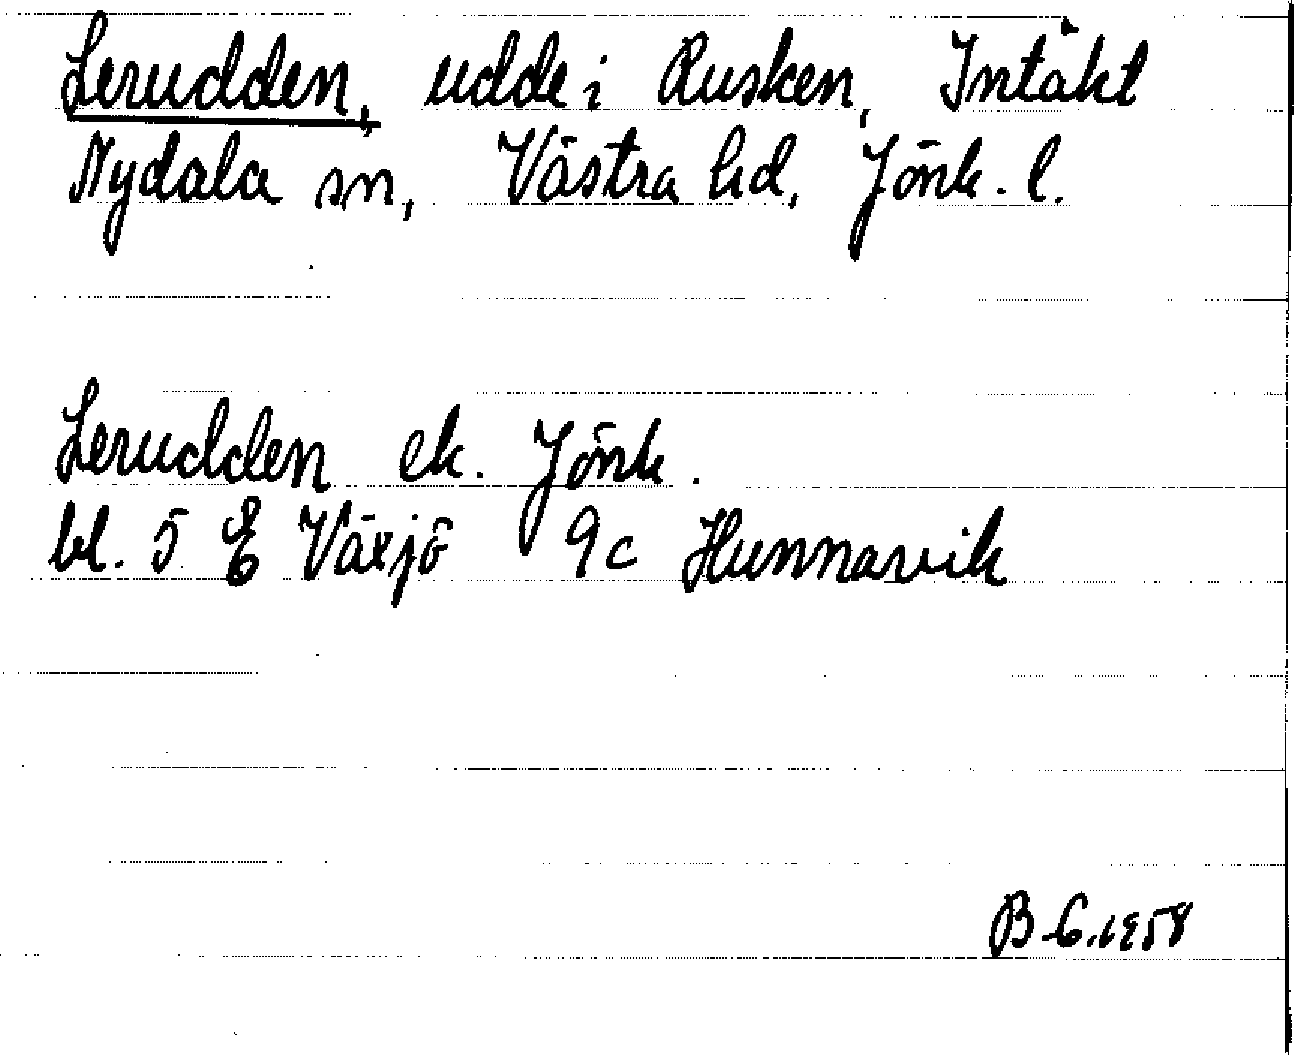 Lerudden, udde i Rusken, Intäkt
Nydala sn, Västra hd, Jönk. l.
Lerudden ek. Jönk.
bl. 5 E Växjö 9c Hunnavik
B-G.1958